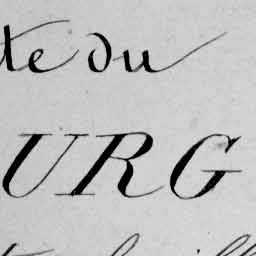 te du
URG